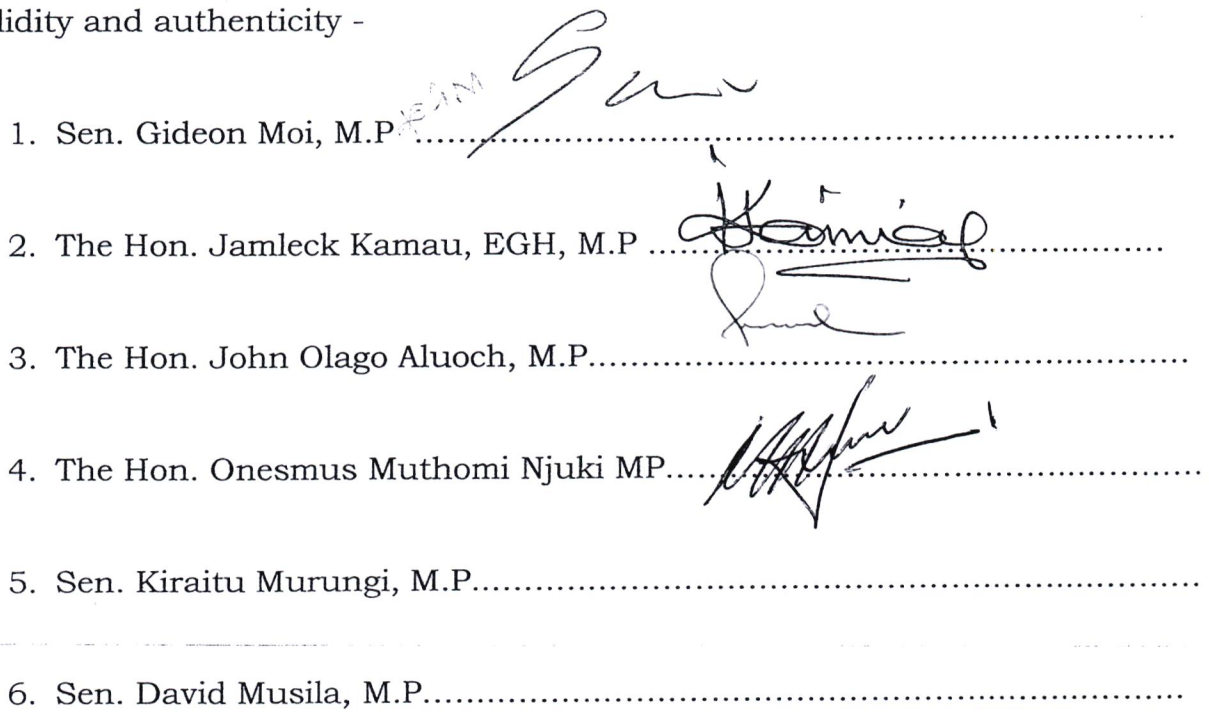 lidity and authenticity -
1. Sen. Gideon Moi, M.P ................................................................................
2. The Hon. Jamleck Kamau, EGH, M.P ......................................................
3. The Hon. John Olago Aluoch, M.P...............................................................
4. The Hon. Onesmus Muthomi Njuki MP.........................................................
5. Sen. Kiraitu Murungi, M.P............................................................................
6. Sen. David Musila, M.P................................................................................